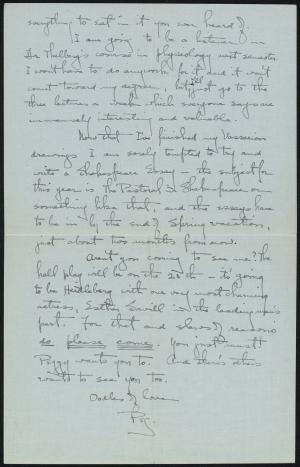 anything to eat in it you ever heard of.
I am going to be a listener in
Dr Thelberg's course in physiology next semester.
I won't have to do any work for it and it won't
count toward my degree, but I'll just go to the
three lectures a week which everyone says are
immensely interesting and valuable.
Now that I've finished my Vassarion
drawings I am sorely tempted to try and
write a Shakespeare Essay — the subject for
this year is the Pastoral in Shakespeare or
something like that, and the essays have
to be in by the end of Spring vacation,
just about two months from now.
Aren't you coming to see me? The
hall play will be on the 28th — it's going
to be Heidelberg with our very most charming
actress, Esther in the leading man's
part. For that and of reasons
do please come. You just must
Peggy wants you to. And there's others
want to see you too.
Oodles of love
Peg.